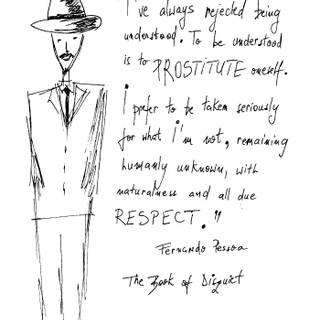 I've always rejected being
understood. To be understood
is to PROSTITUTE oneself.
I prefer to be taken seriously
for what I'm not, remaining
humanly unknown, with
naturalness and all due
RESPECT."
Fernando Pessoa
The Book of Disquiet